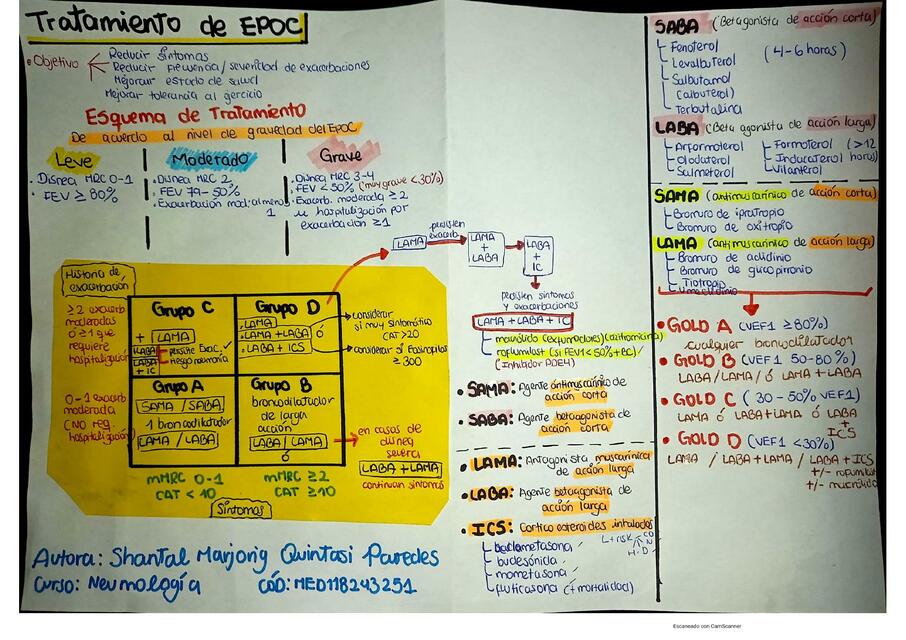 Tratamiento de EPOC
• Objetivo
Reducir síntomas
Reducir frecuencia/severidad de exacerbaciones
Mejorar estado de salud
Mejorar tolerancia al ejercicio
Esquema de Tratamiento
De acuerdo al nivel de gravedad del EPOC
Leve
• Disnea MRC 0-1
• FEV ≥ 80%
Moderado
• Disnea MRC 2
• FEV 79-50%
• Exacerbación mod: al menos 1
Grave
• Disnea MRC 3-4
• FEV < 50% (muy grave <30%)
• Exacerb. moderada ≥ 2
u hospitalización por
exacerbación ≥ 1
Historia de
exacerbación
≥ 2 exacerb
moderadas
ó ≥ 1 que
requiere
hospitalización
0-1 exacerb
moderada
(NO req.
hospitalización)
Grupo C
+ LAMA
LABA
LABA
+ IC
persiste Exac.
riesgo neumonía
Grupo D
• LAMA
• LAMA + LABA ó
• LABA + ICS
considerar
si muy sintomático
CAT > 20
considerar si Eosinofilos
≥ 300
Grupo A
SAMA / SABA
1 broncodilatador
LAMA / LABA
Grupo B
broncodilatador
de larga
acción
LABA / LAMA
ó
en casos de
disnea
severa
LABA + LAMA
continuan síntomas
mMRC 0-1
CAT < 10
mMRC ≥ 2
CAT ≥ 10
Síntomas
LAMA
persisten
exacerb.
LAMA
+
LABA
LABA
+
IC
persisten síntomas
y exacerbaciones
LAMA + LABA + IC
macrólido (exfumadores) (azitromicina)
roflumilast (si FEV1 < 50% + BC)
(Inhibidor PDE4)
• SAMA: Agente antimuscarínico de
acción corta
• SABA: Agente betagonista de
acción corta
• LAMA: Antagonista muscarínico
de acción larga
• LABA: Agente betaagonista de
acción larga
• ICS: Cortico esteroides inhalados
beclometasona
budesónida
mometasona
fluticasona (+ mortalidad)
SABA (Betagonista de acción corta)
Fenoterol
Levalbuterol
Salbutamol
(albuterol)
Terbutalina
(4-6 horas)
LABA (Beta agonista de acción larga)
Arformoterol
Olodaterol
Salmeterol
Formoterol (>12
Indacaterol horas)
Vilanterol
SAMA (antimuscarínico de acción corta)
Bromuro de ipratropio
Bromuro de oxitropio
LAMA (antimuscarínico de acción larga)
Bromuro de aclidinio
Bromuro de glicopirronio
Tiotropio
Umeclidinio
• GOLD A (VEF1 ≥ 80%)
cualquier broncodilatador
• GOLD B (VEF1 50-80%)
LABA / LAMA / ó LAMA + LABA
• GOLD C (30-50% VEF1)
LAMA ó LABA + LAMA ó LABA
+
ICS
• GOLD D (VEF1 < 30%)
LAMA / LABA + LAMA / LABA + ICS
+/- roflumilast
+/- macrólido
Autora: Shantal Marjorig Quintasi Paredes
Curso: Neumología CÓD: MED118243251
Escaneado con CamScanner